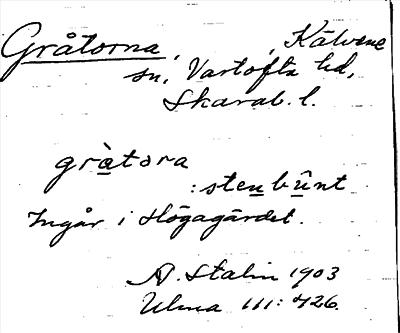 Gråtorna, , Kälvene
sn, Vartofta hd,
Skarab. l.
gràtora
: stenbûnt
Ingår i Högagärdet.
A. Stalin 1903
Ulma 111: 426.